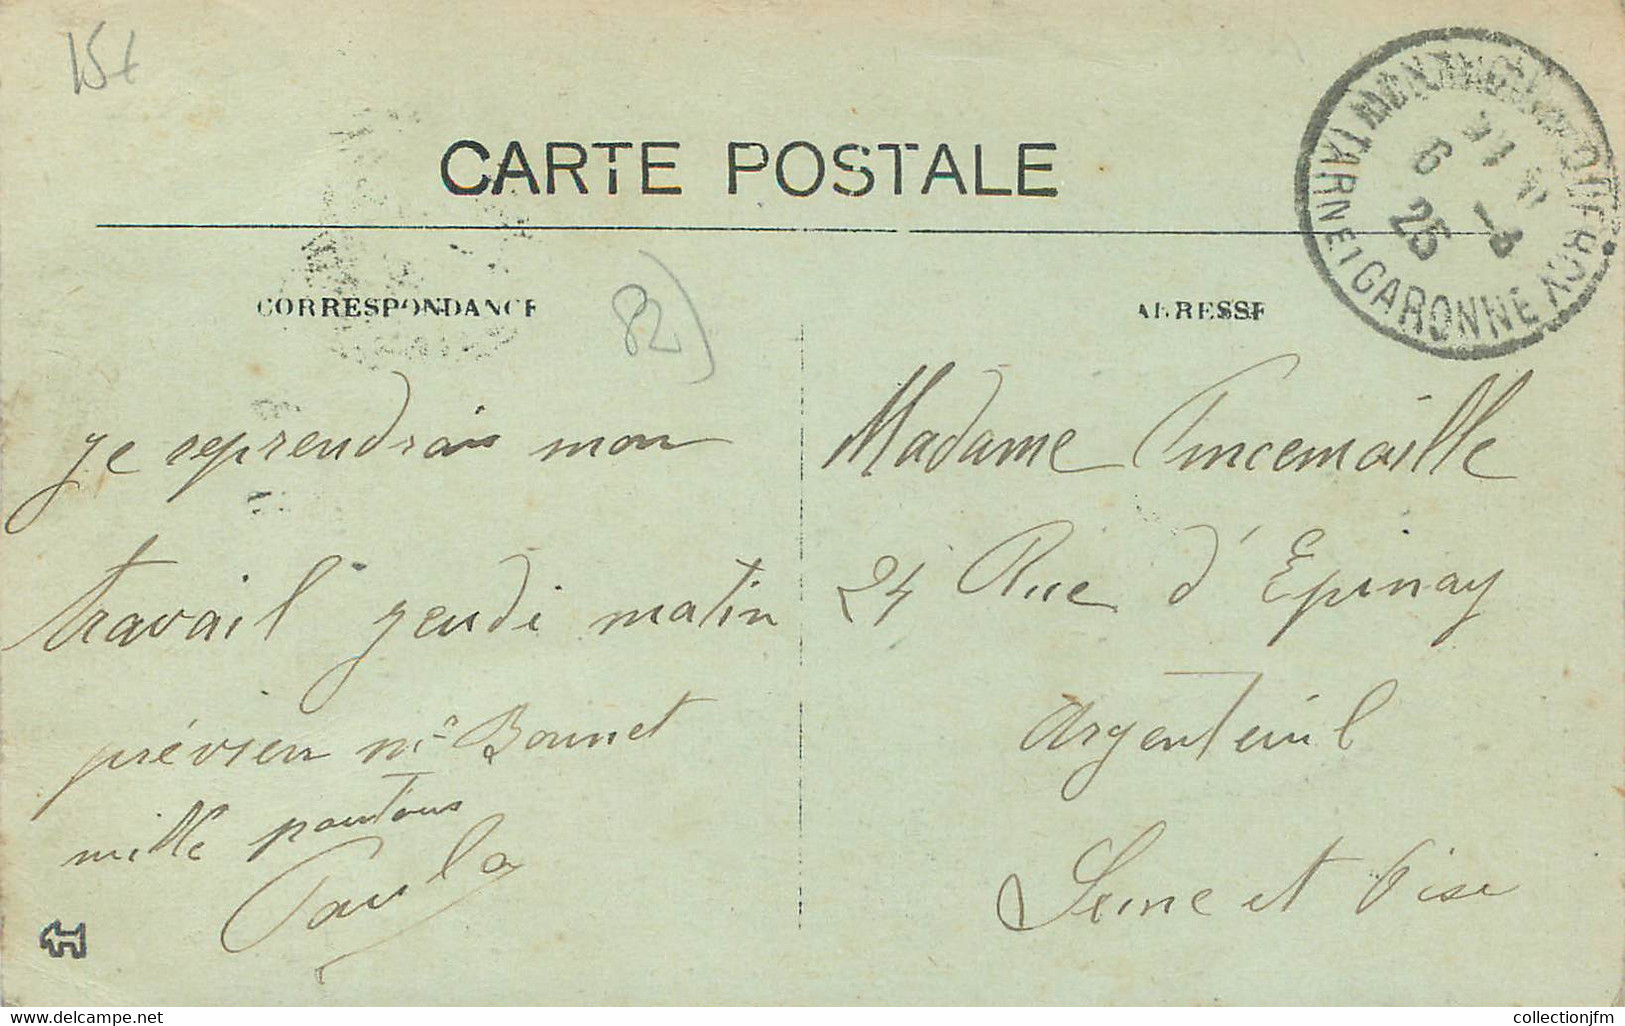 15€
CARTE POSTALE
CORRESPONDANCE
82)
ADRESSE
TARN ET GARONNE
6
25
je reprendrai mon
travail jeudi matin
prévien Me Bonnet
mille
Paula
Madame Pincemaille
24 Rue d'Epinay
Argenteuil
Seine et Oise
www.delcampe.net
collectionjfm